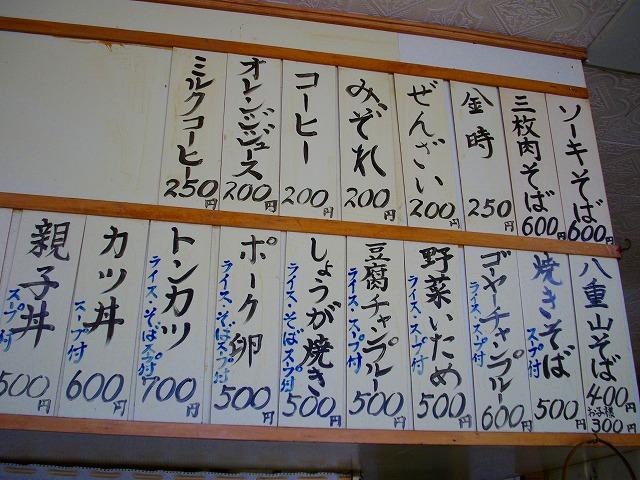 ソーキそば 600円
三枚肉そば 600円
金時 250円
ぜんざい 200円
みぞれ 200円
コーヒー 200円
オレンジジュース 200円
ミルクコーヒー 250円
八重山そば 400円
お子様 300円
焼きそば スープ付 500円
ゴーヤーチャンプルー ライス・スープ付 600円
野菜いため ライス・スープ付 500円
豆腐チャンプルー ライス・スープ付 500円
しょうが焼き ライス・そばスープ付 500円
ポーク卵 ライス・そばスープ付 500円
トンカツ ライス・そばスープ付 700円
カツ丼 スープ付 600円
親子丼 スープ付 500円